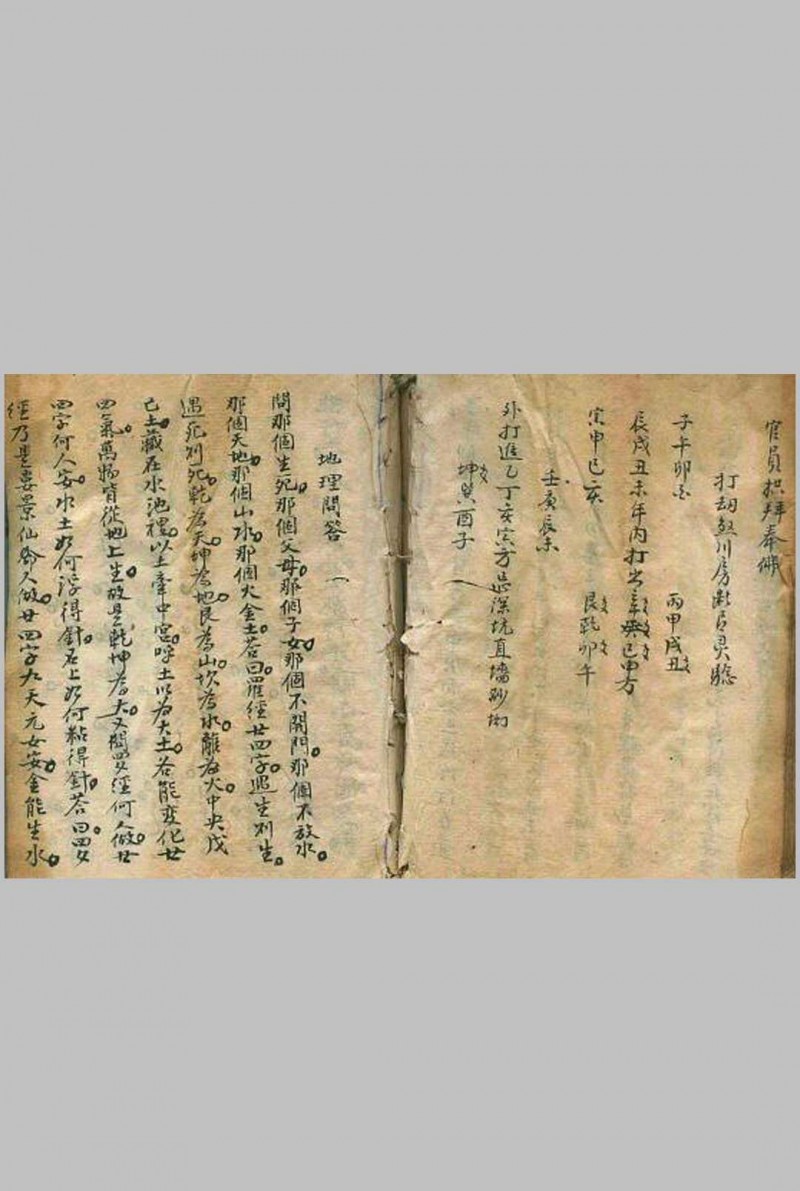 官員拱拜奉佛
打劫 川房 靈驗
子午卯酉 丙甲戌丑
辰戌丑未年內打出 巳申方
寅申巳亥 艮乾卯午
壬庚辰未
外打進乙丁亥寅方忌深坑直墻砂
坤癸酉子
地理問答
問那個生死那個父母那個子女那個不開門那個不放水
那個天地那個山水那個火金土答曰羅經廿四字遇生則生
遇死則死乾為天坤為地艮為山坎為水離為火中央戊
己土藏在水池裡以土牽中宮呼土以為大土若能变化廿
四氣萬物皆從地上生故是乾坤為大又問罗經何人做廿
四字何人安水土如何浮得針石上如何粘得針答曰罗
經乃是 景仙 人做廿四字九天元女安金能生水